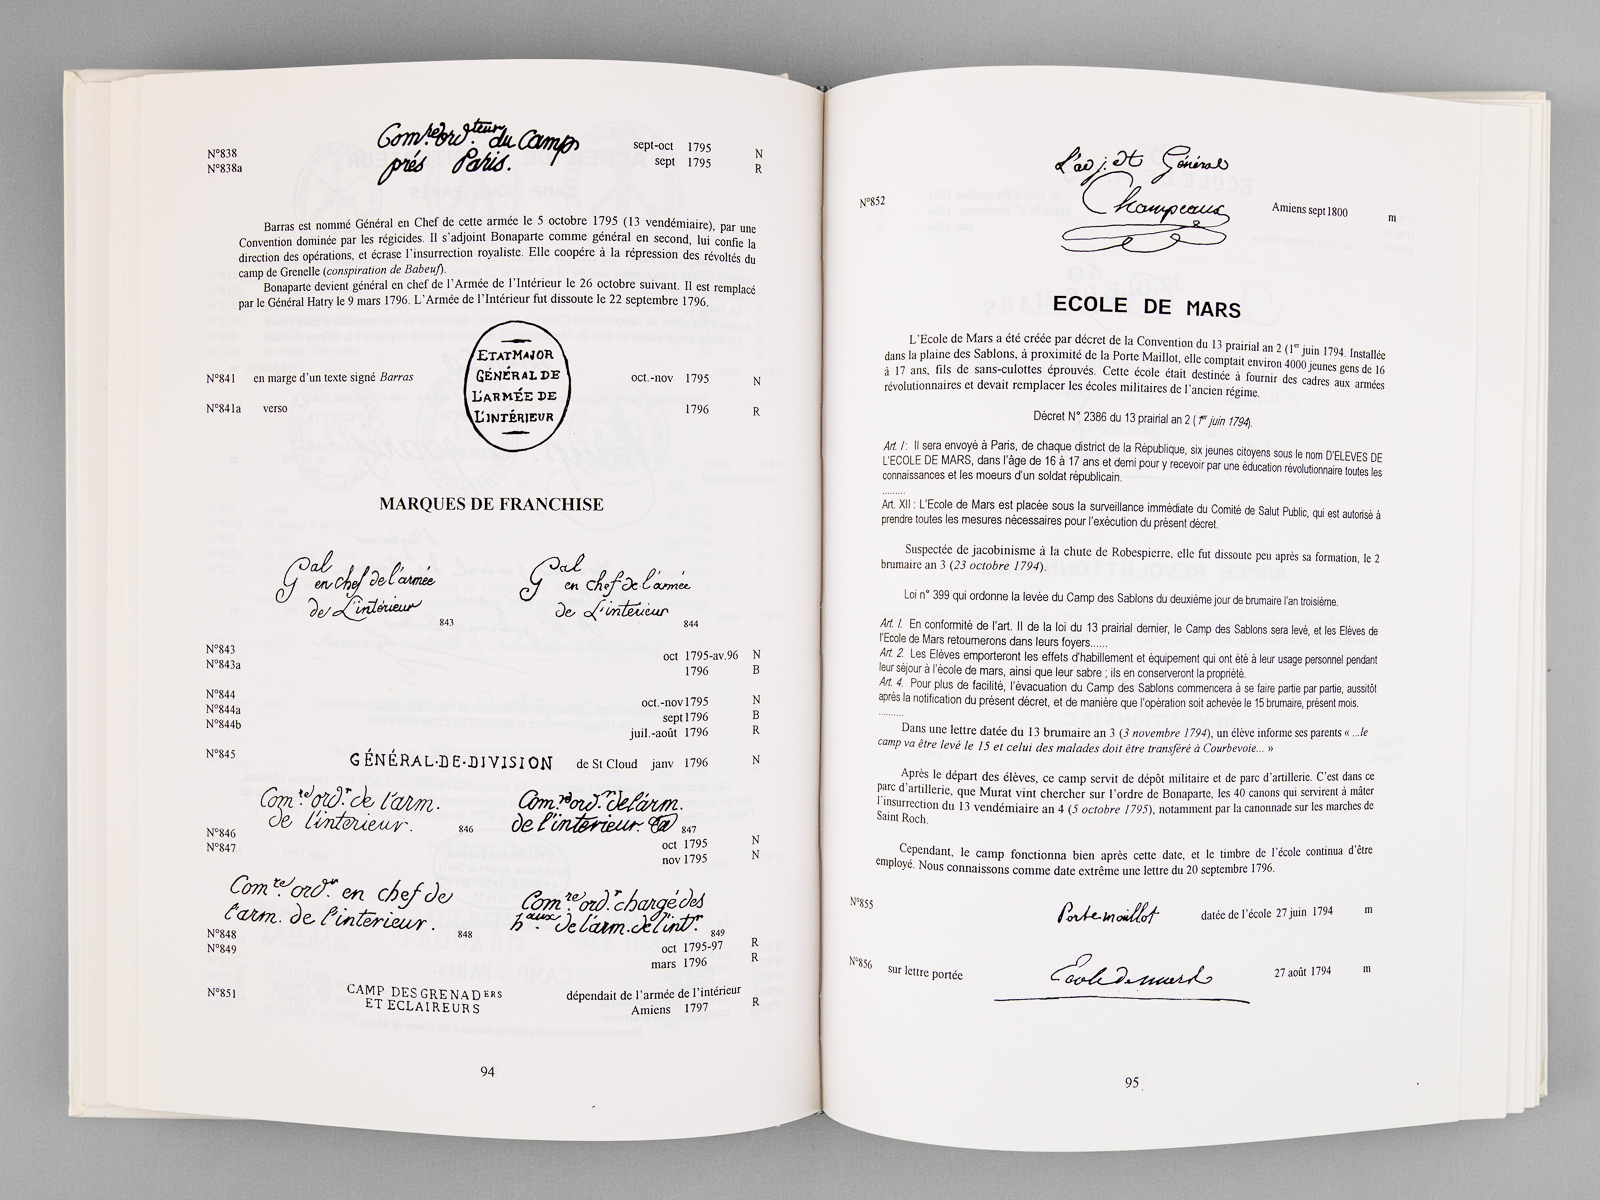 Com.re ord.teur du Camp
près Paris.
N°838 sept-oct 1795 N
N°838a sept 1795 R
Barras est nommé Général en Chef de cette armée le 5 octobre 1795 (13 vendémiaire), par une
Convention dominée par les régicides. Il s'adjoint Bonaparte comme général en second, lui confie la
direction des opérations, et écrase l'insurrection royaliste. Elle coopére à la répression des révoltés du
camp de Grenelle (conspiration de Babeuf).
Bonaparte devient général en chef de l'Armée de l'Intérieur le 26 octobre suivant. Il est remplacé
par le Général Hatry le 9 mars 1796. L'Armée de l'Intérieur fut dissoute le 22 septembre 1796.
ETAT MAJOR
GÉNÉRAL DE
L'ARMÉE DE
L'INTÉRIEUR
N°841 en marge d'un texte signé Barras oct.-nov 1795 N
N°841a verso 1796 R
MARQUES DE FRANCHISE
Gal
en chef de l'armée
de L'intérieur
843
Gal
en chef de l'armée
de L'intérieur
844
N°843 oct 1795-av.96 N
N°843a 1796 B
N°844 oct.-nov1795 N
N°844a sept1796 B
N°844b juil.-août 1796 R
N°845 GÉNÉRAL·DE·DIVISION de St Cloud janv 1796 N
Com.re ord.r de l'arm.
de l'intérieur. 846
Com.re ord.r de l'arm.
de l'intérieur. 847
N°846 oct 1795 N
N°847 nov 1795 N
Com.re ord.r en chef de
l'arm. de l'intérieur. 848
Com.re ord.r chargé des
h.aux de l'arm. de l'int.r 849
N°848 oct 1795-97 R
N°849 mars 1796 R
N°851 CAMP DES GRENADERS dépendait de l'armée de l'intérieur
ET ECLAIREURS Amiens 1797 R
94
L'adj.dt Général
Champeaux
N°852 Amiens sept 1800 m
ECOLE DE MARS
L'Ecole de Mars a été créée par décret de la Convention du 13 prairial an 2 (1er juin 1794. Installée
dans la plaine des Sablons, à proximité de la Porte Maillot, elle comptait environ 4000 jeunes gens de 16
à 17 ans, fils de sans-culottes éprouvés. Cette école était destinée à fournir des cadres aux armées
révolutionnaires et devait remplacer les écoles militaires de l'ancien régime.
Décret N°. 2386 du 13 prairial an 2 (1er juin 1794).
Art. I : Il sera envoyé à Paris, de chaque district de la République, six jeunes citoyens sous le nom D'ELEVES DE
L'ECOLE DE MARS, dans l'âge de 16 à 17 ans et demi pour y recevoir par une éducation révolutionnaire toutes les
connaissances et les moeurs d'un soldat républicain.
..........
Art. XII : L'Ecole de Mars est placée sous la surveillance immédiate du Comité de Salut Public, qui est autorisé à
prendre toutes les mesures nécessaires pour l'exécution du présent décret.
Suspectée de jacobinisme à la chute de Robespierre, elle fut dissoute peu après sa formation, le 2
brumaire an 3 (23 octobre 1794).
Loi n° 399 qui ordonne la levée du Camp des Sablons du deuxième jour de brumaire l'an troisième.
Art. I. En conformité de l'art. II de la loi du 13 prairial dernier, le Camp des Sablons sera levé, et les Elèves de
l'Ecole de Mars retournerons dans leurs foyers......
Art. 2. Les Elèves emporteront les effets d'habillement et équipement qui ont été à leur usage personnel pendant
leur séjour à l'école de mars, ainsi que leur sabre ; ils en conserveront la propriété.
Art. 4. Pour plus de facilité, l'évacuation du Camp des Sablons commencera à se faire partie par partie, aussitôt
après la notification du présent décret, et de manière que l'opération soit achevée le 15 brumaire, présent mois.
..........
Dans une lettre datée du 13 brumaire an 3 (3 novembre 1794), un élève informe ses parents « ...le
camp va être levé le 15 et celui des malades doit être transféré à Courbevoie... »
Après le départ des élèves, ce camp servit de dépôt militaire et de parc d'artillerie. C'est dans ce
parc d'artillerie, que Murat vint chercher sur l'ordre de Bonaparte, les 40 canons qui servirent à mâter
l'insurrection du 13 vendémiaire an 4 (5 octobre 1795), notamment par la canonnade sur les marches de
Saint Roch.
Cependant, le camp fonctionna bien après cette date, et le timbre de l'école continua d'être
employé. Nous connaissons comme date extrême une lettre du 20 septembre 1796.
N°855 Porte-maillot datée de l'école 27 juin 1794 m
N°856 sur lettre portée École de mars 27 août 1794 m
95